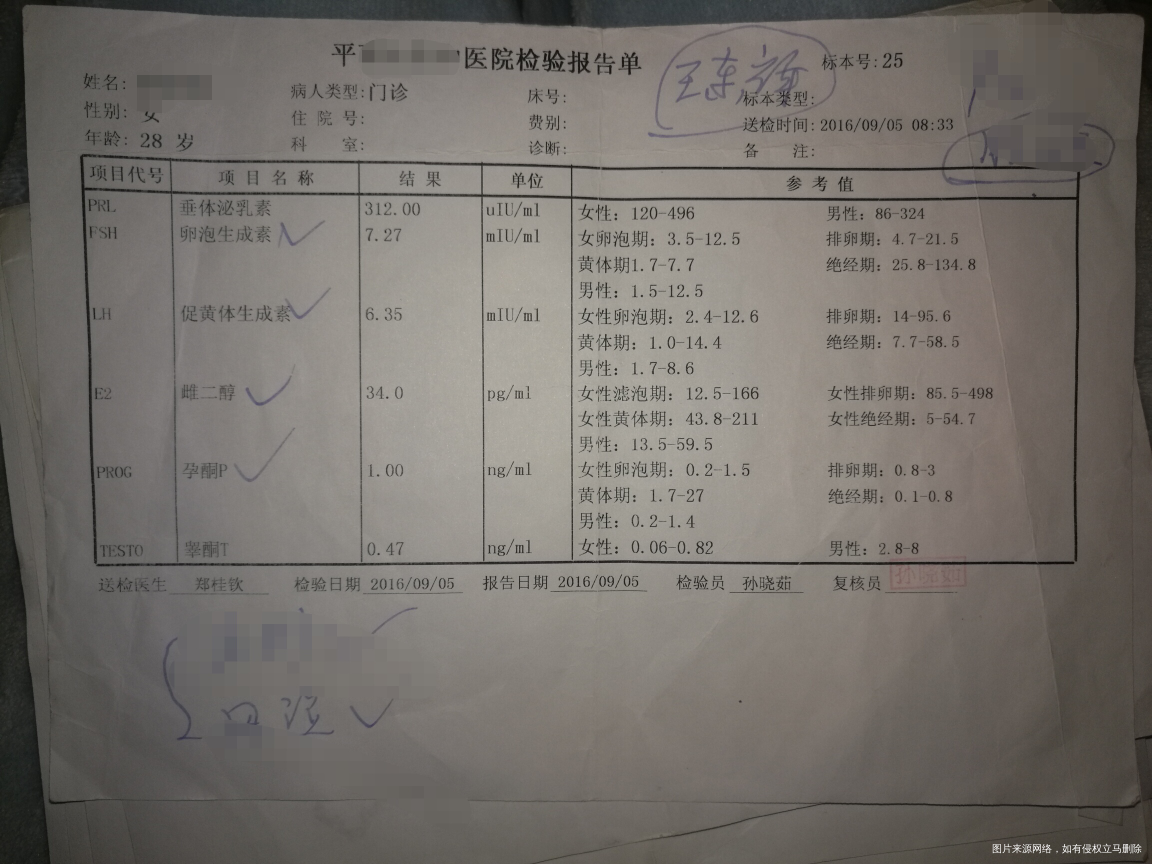 平 医院检验报告单
标本号:25
姓名: 病人类型:门诊 床号: 标本类型:
性别: 女 住 院 号: 费别: 送检时间:2016/09/05 08:33
年龄: 28 岁 科 室: 诊断: 备 注:
项目代号 项 目 名 称 结 果 单位 参 考 值
PRL 垂体泌乳素 312.00 uIU/ml 女性: 120-496 男性: 86-324
FSH 卵泡生成素 7.27 mIU/ml 女卵泡期: 3.5-12.5 排卵期: 4.7-21.5
黄体期1.7-7.7 绝经期: 25.8-134.8
男性: 1.5-12.5
LH 促黄体生成素 6.35 mIU/ml 女性卵泡期: 2.4-12.6 排卵期: 14-95.6
黄体期: 1.0-14.4 绝经期: 7.7-58.5
男性: 1.7-8.6
E2 雌二醇 34.0 pg/ml 女性滤泡期: 12.5-166 女性排卵期: 85.5-498
女性黄体期: 43.8-211 女性绝经期: 5-54.7
男性: 13.5-59.5
PROG 孕酮P 1.00 ng/ml 女性卵泡期: 0.2-1.5 排卵期: 0.8-3
黄体期: 1.7-27 绝经期: 0.1-0.8
男性: 0.2-1.4
TESTO 睾酮T 0.47 ng/ml 女性: 0.06-0.82 男性: 2.8-8
送检医生 郑桂钦 检验日期 2016/09/05 报告日期 2016/09/05 检验员 孙晓茹 复核员 孙晓茹
图片来源网络，如有侵权立马删除